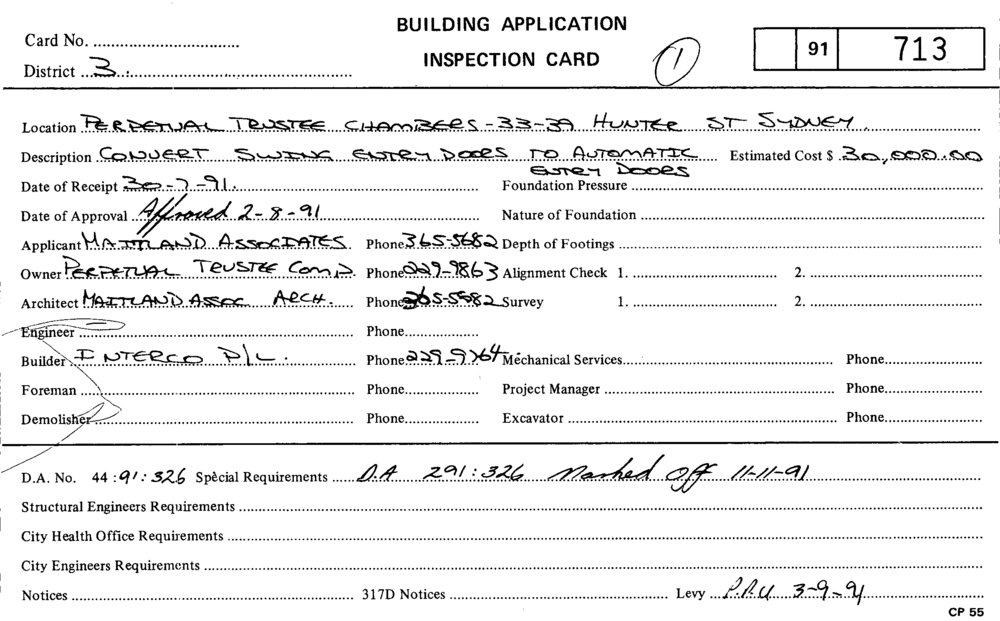 BUILDING APPLICATION
INSPECTION CARD
Card No.
District 3
1
91 713
Location PERPETUAL TRUSTEE CHAMBERS - 33-39 HUNTER ST SYDNEY
Description CONVERT SWING ENTRY DOORS TO AUTOMATIC ENTRY DOORS Estimated Cost $ 30,000.00
Date of Receipt 30-7-91 Foundation Pressure
Date of Approval Approved 2-8-91 Nature of Foundation
Applicant MAITLAND ASSOCIATES Phone 365-5682 Depth of Footings
Owner PERPETUAL TRUSTEE Phone 229-9863 Alignment Check 1. 2.
Architect MAITLAND ASSOC ARCH. Phone Survey 1. 2.
Engineer Phone
Builder INTERCO P/L. Phone Mechanical Services Phone
Foreman Phone Project Manager Phone
Demolisher Phone Excavator Phone
D.A. No. 44 : 91 : 326 Spècial Requirements D.A 291:326 Marked Off 11-11-91
Structural Engineers Requirements
City Health Office Requirements
City Engineers Requirements
Notices 317D Notices Levy 3-9-91
CP 55